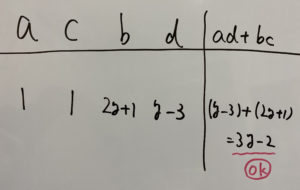 a c b d ad+bc
1 1 2y+1 y-3 (y-3)+(2y+1)
=3y-2
ok